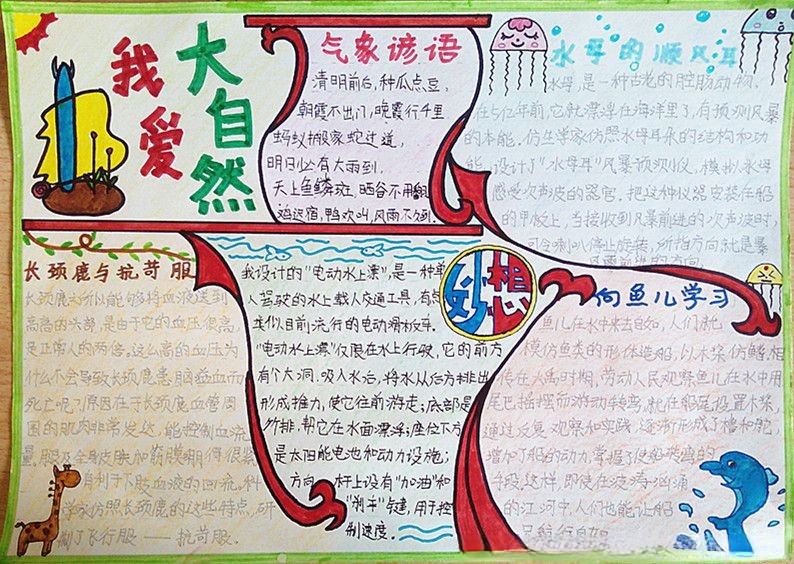 我爱
大自然
气象谚语
清明前后,种瓜点豆,
朝霞不出门,晚霞行千里
蚂蚁搬家蛇过道,
明日必有大雨到,
天上鱼鳞斑,晒谷不用翻
鸡迟宿,鸭欢叫,风雨不久到.
水母的顺风耳
水母,是一种古老的腔肠动物,
在5亿年前,它就漂浮在海洋里了,有预测风暴
的本能,仿生学家仿照水母耳朵的结构和功
能,设计了"水母耳"风暴预测仪,模拟水母
感受次声波的器官.把这种仪器安装在船
的甲板上,当接收到风暴前进的次声波时,
可令喇叭停止旋转,所指方向就是暴
风雨前进的方向.
长颈鹿与抗苛服
长颈鹿之所以能够将血液送到
高高的头部,是由于它的血压很高,
是正常人的两倍.这么高的血压为
什么不会导致长颈鹿患脑溢血而
死亡呢?原因在于长颈鹿血管周
围的肌肉非常发达,能控制血流
量.腿及全身皮肤和筋膜绷得很紧
有利于下肢血液的回流.科
学家仿照长颈鹿的这些特点,研
制了飞行服——抗苛服.
妙想
我设计的"电动水上漂",是一种单
人驾驶的水上载人交通工具,有点
类似目前流行的电动滑板车.
"电动水上漂"仅限在水上行驶,它的前方
有个大洞.吸入水后,将水从后方排出
形成推力,使它往前游走;底部是
竹排,帮它在水面漂浮;座位下方
是太阳能电池和动力设施;
方向 杆上设有"加油"和
"刹车"按建,用于控
制速度.
向鱼儿学习
鱼儿在水中来去自如,人们就
模仿鱼类的形体造船,以木桨仿鳍.相
传在大禹时期,劳动人民观察鱼儿在水中用
尾巴摇摆而游动转弯,就在船尾设置木桨,
通过反复观察和实践,逐渐形成了橹和舵,
增加了船的动力,掌握了使船转弯的
手段.这样,即使在波涛汹涌
的江河中,人们也能让船
只航行自如